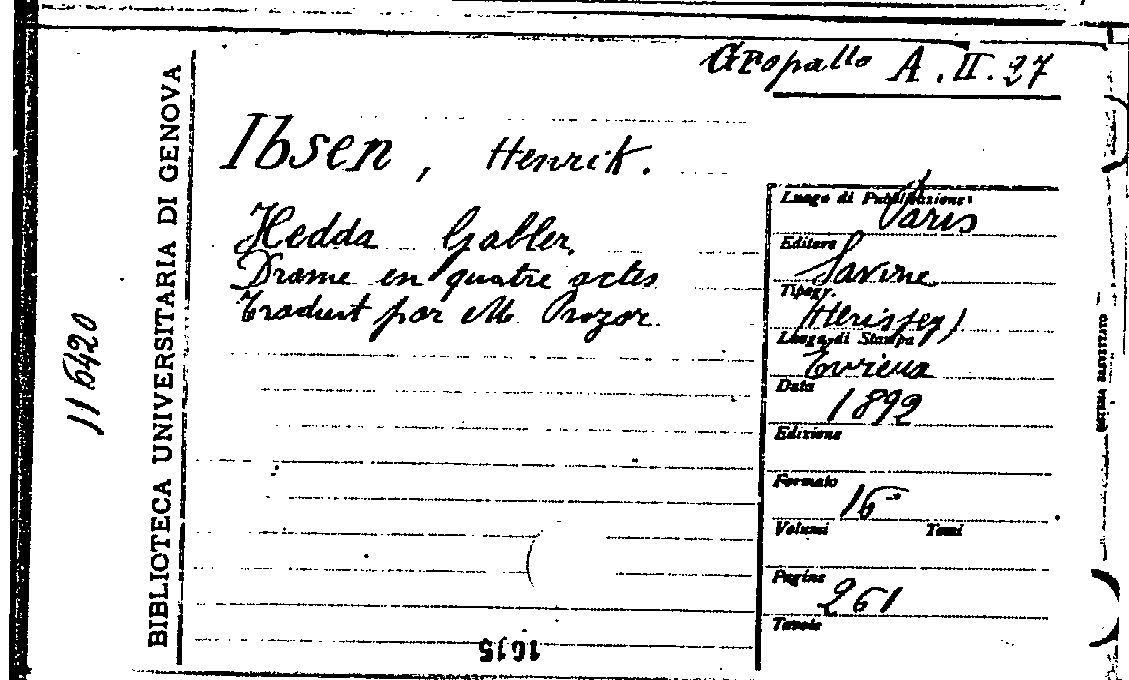 Gropallo A.II.27
Ibsen, Henrik.
Hedda Gabler.
Drame en quatre actes
Traduit par M. Prozor.
BIBLIOTECA UNIVERSITARIA DI GENOVA
11520
Luogo di Pubblicazione:
Paris
Editore
Savine
Tipogr.
(Herissey)
Luogo di Stampa
Evreux
Data
1892
Edizione
Formato
16°
Volumi Tomi
Pagine
261
Tavole